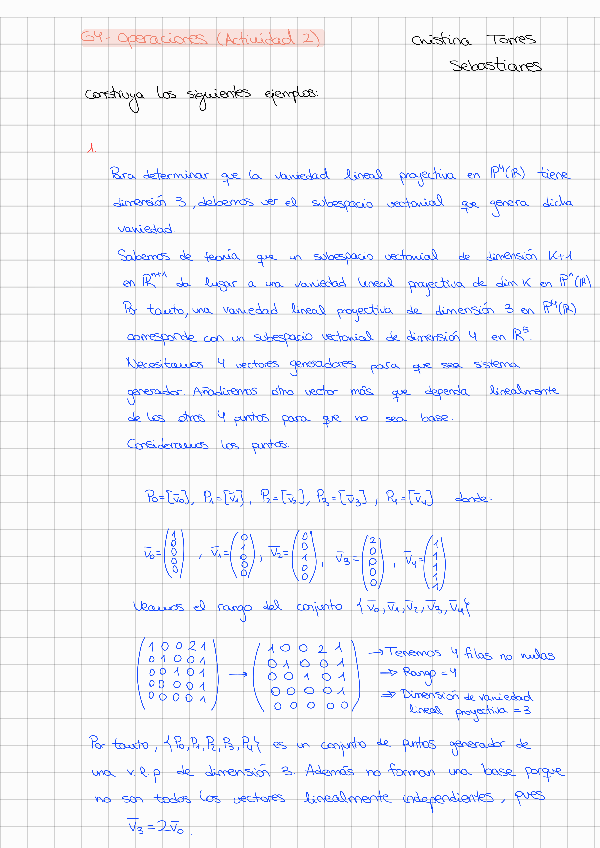 G4- Operaciones (Actividad 2)
Christina Torres
Sebastianes
Construya los siguientes ejemplos:
1.
Para determinar que la variedad lineal proyectiva en P⁴(R) tiene
dimensión 3, debemos ver el subespacio vectorial que genera dicha
variedad
Sabemos de teoría que un subespacio vectorial de dimensión K+1
en Rⁿ⁺¹ da lugar a una variedad lineal proyectiva de dim K en Pⁿ(R)
Por tanto, una variedad lineal proyectiva de dimensión 3 en P⁴(R)
corresponde con un subespacio vectorial de dimensión 4 en R⁵.
Necesitamos 4 vectores generadores para que sea sistema
generador. Añadiremos otro vector más que dependa linealmente
de los otros 4 puntos para que no sea base.
Consideramos los puntos:
P₀=[v̄₀], P₁=[v̄₁], P₂=[v̄₂], P₃=[v̄₃], P₄=[v̄₄] donde.
v̄₀=(1 0 0 0 0), v̄₁=(0 1 0 0 0), v̄₂=(0 0 1 0 0), v̄₃=(2 0 0 0 0), v̄₄=(1 1 1 1 1)
Veamos el rango del conjunto {v̄₀, v̄₁, v̄₂, v̄₃, v̄₄}
1 0 0 2 1 1 0 0 2 1 → Tenemos 4 filas no nulas
0 1 0 0 1 0 1 0 0 1 ⇒ Rango = 4
0 0 1 0 1 → 0 0 1 0 1 ⇒ Dimensión de variedad
0 0 0 0 1 0 0 0 0 1 lineal proyectiva = 3
0 0 0 0 1 0 0 0 0 0
Por tanto, {P₀, P₁, P₂, P₃, P₄} es un conjunto de puntos generador de
una v.l.p de dimensión 3. Además no forman una base porque
no son todos los vectores linealmente independientes, pues
v̄₃=2v̄₀.